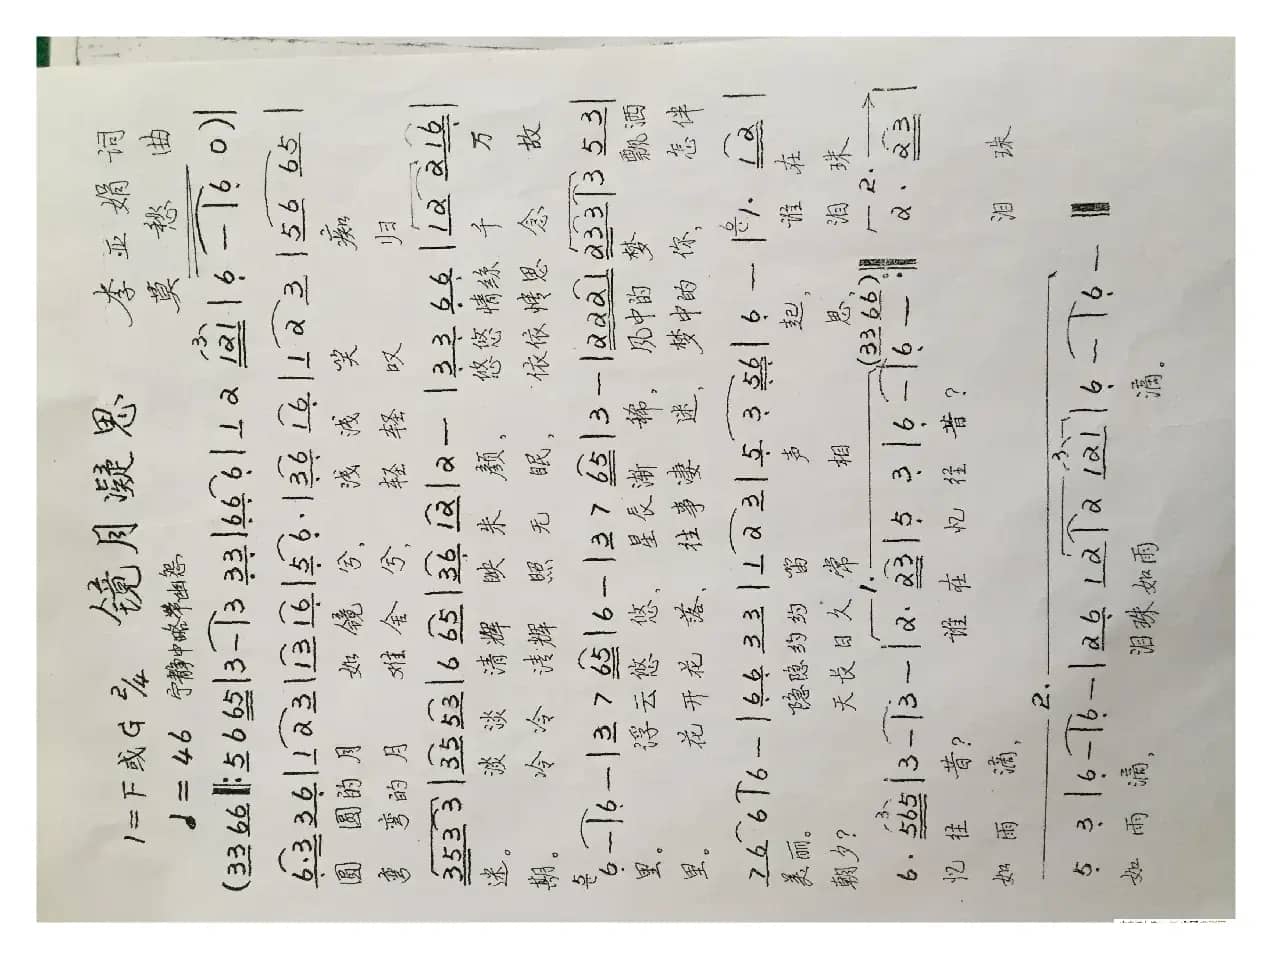 镜月凝思
1=F或G 2/4
李亚娟 词
♩=46 宁静中略带幽怨
莫愁 曲
(33 66 ‖: 5 6 65 | 3 - | 3 33 | 66 6 | 1 2 121 | 6 - | 6 0) |
6·3 36 | 1 2 3 | 13 16 | 56· | 36 16 | 1 2 3 | 56 65 |
圆圆的月 如镜兮, 浅浅笑 痴
弯弯的月 难全兮, 轻轻叹 归
353 3 | 35 53 | 6 65 | 36 12 | 2 - | 33 66 | 12 216 |
迷。 淡淡清辉映朱颜, 悠悠情丝千万
期。 冷冷清辉照无眠, 依依情思念故
6 - | 6 - | 37 65 | 6 - | 37 65 | 3 - | 2221 233 | 3 53 |
里。 浮云悠悠, 星辰渐稀, 风中的梦 飘洒
里。 花开花落, 往事凄迷, 梦中的你, 怎伴
76 6 | 6 - | 66 33 | 1 2 3 | 5 3 56 | 6 - | % 12 |
美丽。 隐隐约约笛声起, 谁在
朝夕? 天长日久常相思, 泪珠
6· 565 | 3 - | 3 - | 2· 23 | 5 3 | 6 - | 6 - :‖ 2· 23 |
1. (33 66) 2.
忆往昔? 谁在忆往昔?
如雨滴, 泪珠
2.
5 3 | 6 - | 6 - | 26 12 | 2 121 | 6 - | 6 - ‖
如雨滴, 泪珠如雨滴。